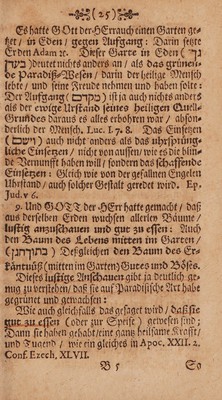 (25)
Es hatte GOtt der HErr auch einen Garten ge-
setzt / in Eden / gegen Aufgang: Darin setzte
Er den Adam ꝛc. Dieser Garte in Eden (
) deutet nichts anders an / als das grünen-
de Paradiß-Wesen / darin der heilige Mensch
lebte / und seine Freude nehmen und haben solte:
Der Aufgang (מקדם) auch nichts anders als
der ewige Ursstand seines heiligen Quell-
Grundes daraus es alles erbohren war / abson-
derlich der Mensch. Luc. I. 7. 8. Das Einsetzen
(וישם) auch nicht anders als das uhrsprüng-
liche Einsetzen / nicht von aussen wie es die blin-
de Vernunfft haben will / sondern das schaffende
Einsetzen: Gleich wie von der gefallnen Engelen
Uhrstand / auch solcher Gestalt geredet wird. Ep.
Jud. v 6.
9. Und GOTT der HErr hatte gemacht / daß
aus derselben Erden wuchsen allerley Bäume /
lustig anzuschauen und gut zu essen: Auch
den Baum des Lebens mitten im Garten /
(בתוך הגן) Deßgleichen den Baum des Er-
käntnüß (mitten im Garten) Gutes und Böses.
Dieses lustige Anschauen gibt ja deutlich ge-
nug zu verstehen / daß sie auf Paradisische Art habe
gegrünet und gewachsen:
Wie auch gleichfalls das gesaget wird / daß sie
gut zu essen (oder zur Speise) gewesen sind;
Dann sie haben gehabt / eine gantz heilsame Krafft /
und Tugend / wie ein gleiches in Apoc. XXII. 2.
Conf. Ezech. XLVII.
B 5 So